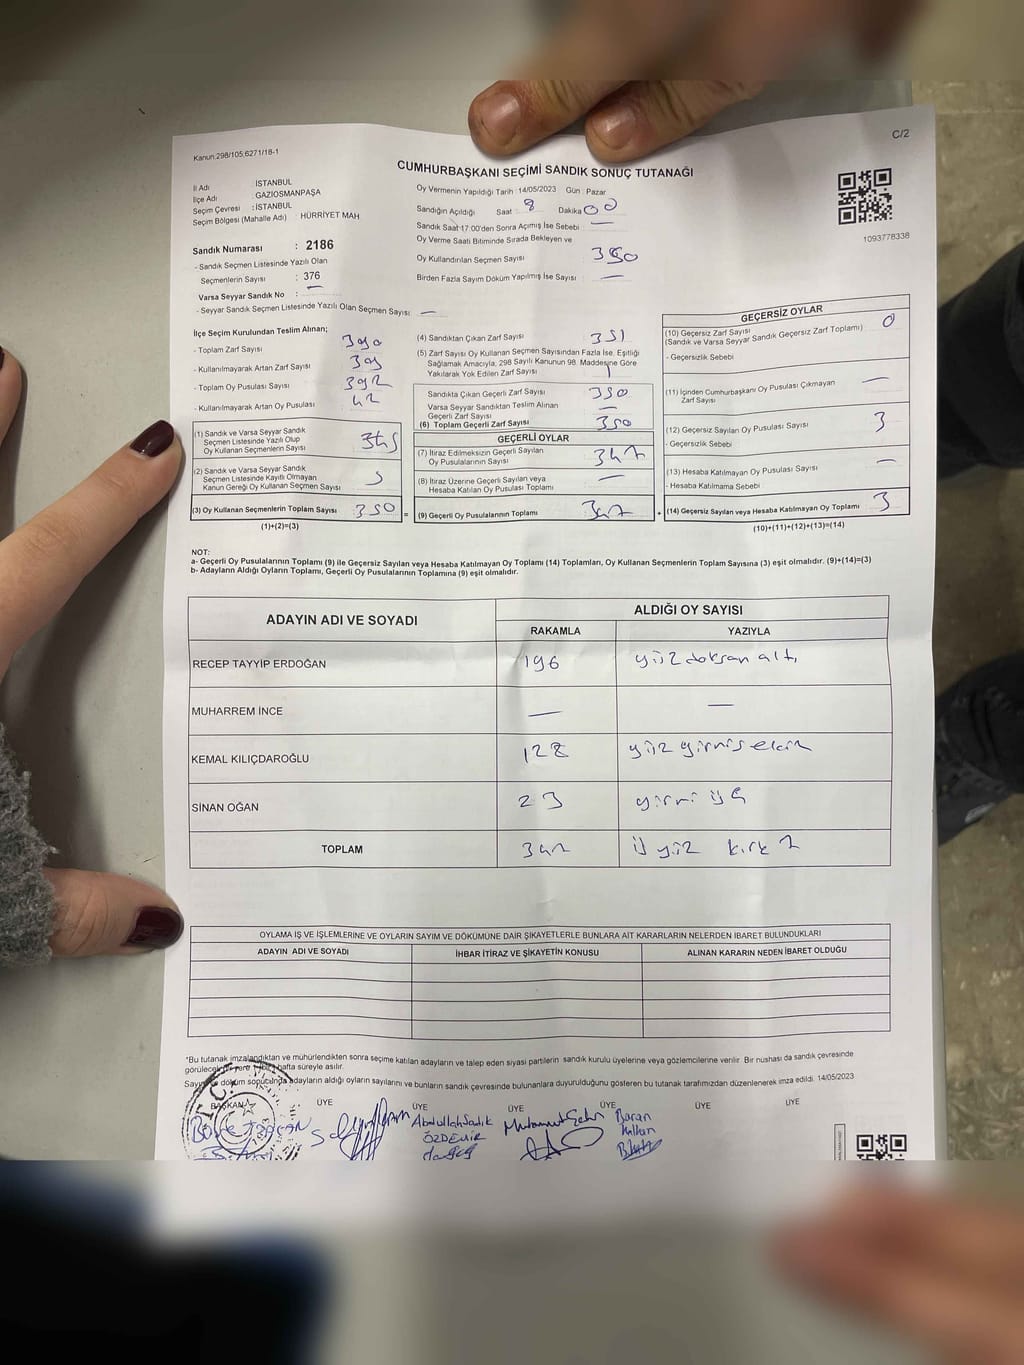 C/2
Kanun:298/105;6271/18-1
CUMHURBAŞKANI SEÇİMİ SANDIK SONUÇ TUTANAĞI
İl Adı : İSTANBUL
İlçe Adı : GAZİOSMANPAŞA
Seçim Çevresi : İSTANBUL
Seçim Bölgesi (Mahalle Adı) : HÜRRİYET MAH
Sandık Numarası : 2186
- Sandık Seçmen Listesinde Yazılı Olan
Seçmenlerin Sayısı : 376
Varsa Seyyar Sandık No : —
- Seyyar Sandık Seçmen Listesinde Yazılı Olan Seçmen Sayısı —
Oy Vermenin Yapıldığı Tarih : 14/05/2023 Gün : Pazar
Sandığın Açıldığı Saat : 8 Dakika 00
Sandık Saat 17:00'den Sonra Açımış İse Sebebi : —
Oy Verme Saati Bitiminde Sırada Bekleyen ve
Oy Kullandırılan Seçmen Sayısı 350
Birden Fazla Sayım Döküm Yapılmış İse Sayısı : —
1093778338
İlçe Seçim Kurulundan Teslim Alınan;
- Toplam Zarf Sayısı 390
- Kullanılmayarak Artan Zarf Sayısı 39
- Toplam Oy Pusulası Sayısı 392
- Kullanılmayarak Artan Oy Pusulası 42
(1) Sandık ve Varsa Seyyar Sandık
Seçmen Listesinde Yazılı Olup
Oy Kullanan Seçmenlerin Sayısı 345
(2) Sandık ve Varsa Seyyar Sandık
Seçmen Listesinde Kayıtlı Olmayan
Kanun Gereği Oy Kullanan Seçmen Sayısı 5
(3) Oy Kullanan Seçmenlerin Toplam Sayısı 350 =
(1)+(2)=(3)
(4) Sandıktan Çıkan Zarf Sayısı 351
(5) Zarf Sayısı Oy Kullanan Seçmen Sayısından Fazla İse, Eşitliği
Sağlamak Amacıyla, 298 Sayılı Kanunun 98. Maddesine Göre
Yakılarak Yok Edilen Zarf Sayısı 1
Sandıkta Çıkan Geçerli Zarf Sayısı 350
Varsa Seyyar Sandıktan Teslim Alınan
Geçerli Zarf Sayısı —
(6) Toplam Geçerli Zarf Sayısı 350
GEÇERLİ OYLAR
(7) İtiraz Edilmeksizin Geçerli Sayılan
Oy Pusulalarının Sayısı 347
(8) İtiraz Üzerine Geçerli Sayılan veya
Hesaba Katılan Oy Pusulası Toplamı —
(9) Geçerli Oy Pusulalarının Toplamı 347 +
GEÇERSİZ OYLAR
(10) Geçersiz Zarf Sayısı 0
(Sandık ve Varsa Seyyar Sandık Geçersiz Zarf Toplamı)
- Geçersizlik Sebebi
(11) İçinden Cumhurbaşkanı Oy Pusulası Çıkmayan
Zarf Sayısı —
(12) Geçersiz Sayılan Oy Pusulası Sayısı 3
- Geçersizlik Sebebi
(13) Hesaba Katılmayan Oy Pusulası Sayısı —
- Hesaba Katılmama Sebebi
(14) Geçersiz Sayılan veya Hesaba Katılmayan Oy Toplamı 3
(10)+(11)+(12)+(13)=(14)
NOT:
a- Geçerli Oy Pusulalarının Toplamı (9) ile Geçersiz Sayılan veya Hesaba Katılmayan Oy Toplamı (14) Toplamları, Oy Kullanan Seçmenlerin Toplam Sayısına (3) eşit olmalıdır. (9)+(14)=(3)
b- Adayların Aldığı Oyların Toplamı, Geçerli Oy Pusulalarının Toplamına (9) eşit olmalıdır.
ADAYIN ADI VE SOYADI ALDIĞI OY SAYISI
RAKAMLA YAZIYLA
RECEP TAYYİP ERDOĞAN 196 yüz doksan altı
MUHARREM İNCE — —
KEMAL KILIÇDAROĞLU 128 yüz yirmi sekiz
SİNAN OĞAN 23 yirmi üç
TOPLAM 347 üç yüz kırk 7
OYLAMA İŞ VE İŞLEMLERİNE VE OYLARIN SAYIM VE DÖKÜMÜNE DAİR ŞİKAYETLERLE BUNLARA AİT KARARLARIN NELERDEN İBARET BULUNDUKLARI
ADAYIN ADI VE SOYADI İHBAR İTİRAZ VE ŞİKAYETİN KONUSU ALINAN KARARIN NEDEN İBARET OLDUĞU
*Bu tutanak imzalandıktan ve mühürlendikten sonra seçime katılan adayların ve talep eden siyasi partilerin sandık kurulu üyelerine veya gözlemcilerine verilir. Bir nushası da sandık çevresinde
görülecek bir yere 1 (bir) hafta süreyle asılır.
Sayım ve döküm sonucunda adayların aldığı oyların sayılarını ve bunların sandık çevresinde bulunanlara duyurulduğunu gösteren bu tutanak tarafımızdan düzenlenerek imza edildi. 14/05/2023
BAŞKAN ÜYE ÜYE ÜYE ÜYE ÜYE ÜYE
T.C.
Abdullah Sadık
ÖZDEMİR
Baran